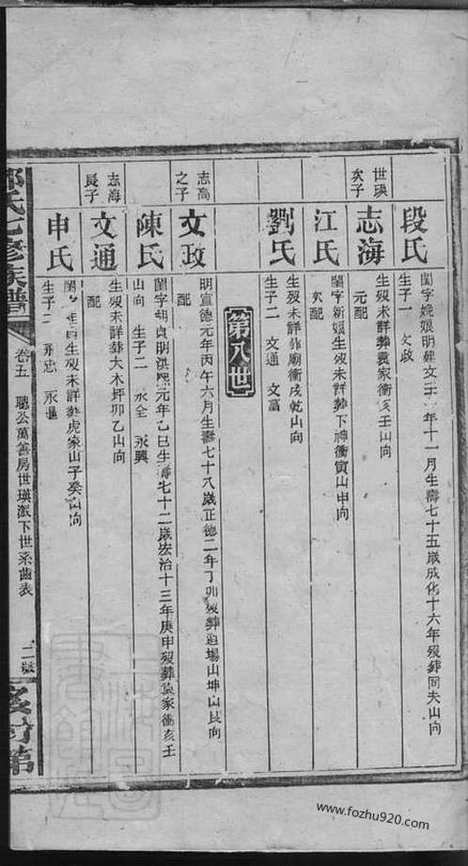 段氏
閨字 娘明建文三年十一月生壽七十五歲成化十六年歿葬同夫山向
生子一 文政
世瑛
次子
志海
生歿未詳葬 家衝亥壬山向
元配
江氏
閨字新娘生歿未詳葬下神衝寅山申向
次配
劉氏
生歿未詳葬 廟衝戌乾山向
生子二 文通 文富
第八世
志高
之子
文政
明宣德元年丙午六月生壽七十八歲正德二年丁卯歿葬 場山坤山艮向
配
陳氏
閨字 貞明洪熙元年乙巳生壽七十二歲宏治十三年庚申歿葬 家衝亥壬
山向 生子二 永全 永興
志海
長子
文通
生歿未詳葬大木坪卯乙山向
配
申氏
閨 生歿未詳葬虎象山子癸山向
生子二 永忠 永
氏七修族譜
卷五 聰公萬善房世瑛派下世系齒表
二